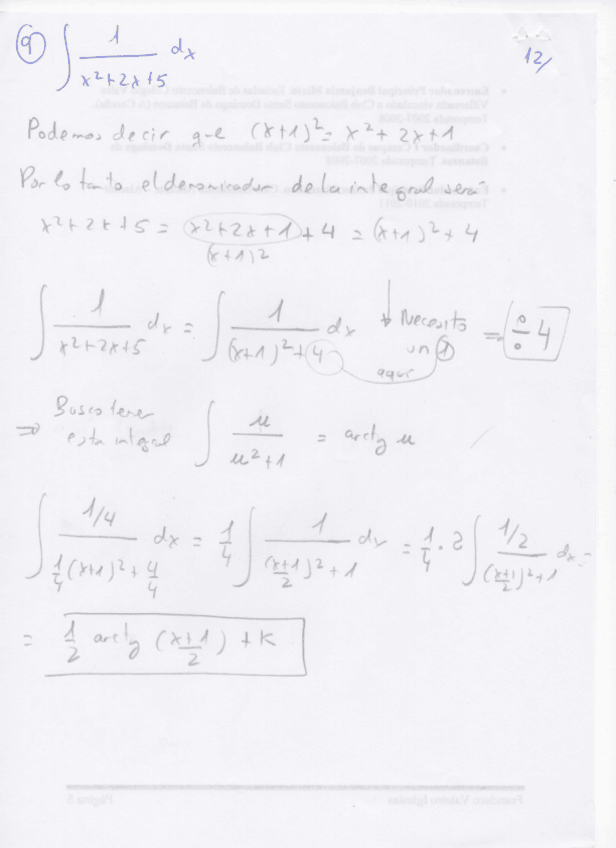 9 ∫ 1/(x²+2x+5) dx
12/
Podemos decir que (x+1)² = x² + 2x + 1
Por lo tanto el denominador de la integral será
x²+2x+5 = x²+2x+1 + 4 = (x+1)² + 4
(x+1)²
∫ 1/(x²+2x+5) dx = ∫ 1/((x+1)²+4) dx ↓ Necesito un 1 aquí = ÷ 4
⇒ Busco tener esta integral ∫ u/(u²+1) = arctg u
∫ (1/4)/(1/4 (x+1)² + 4/4) dx = 1/4 ∫ 1/((x+1/2)²+1) dx = 1/4 · 2 ∫ (1/2)/((x+1/2)²+1) dx =
= 1/2 arctg (x+1/2) + K
Página 5